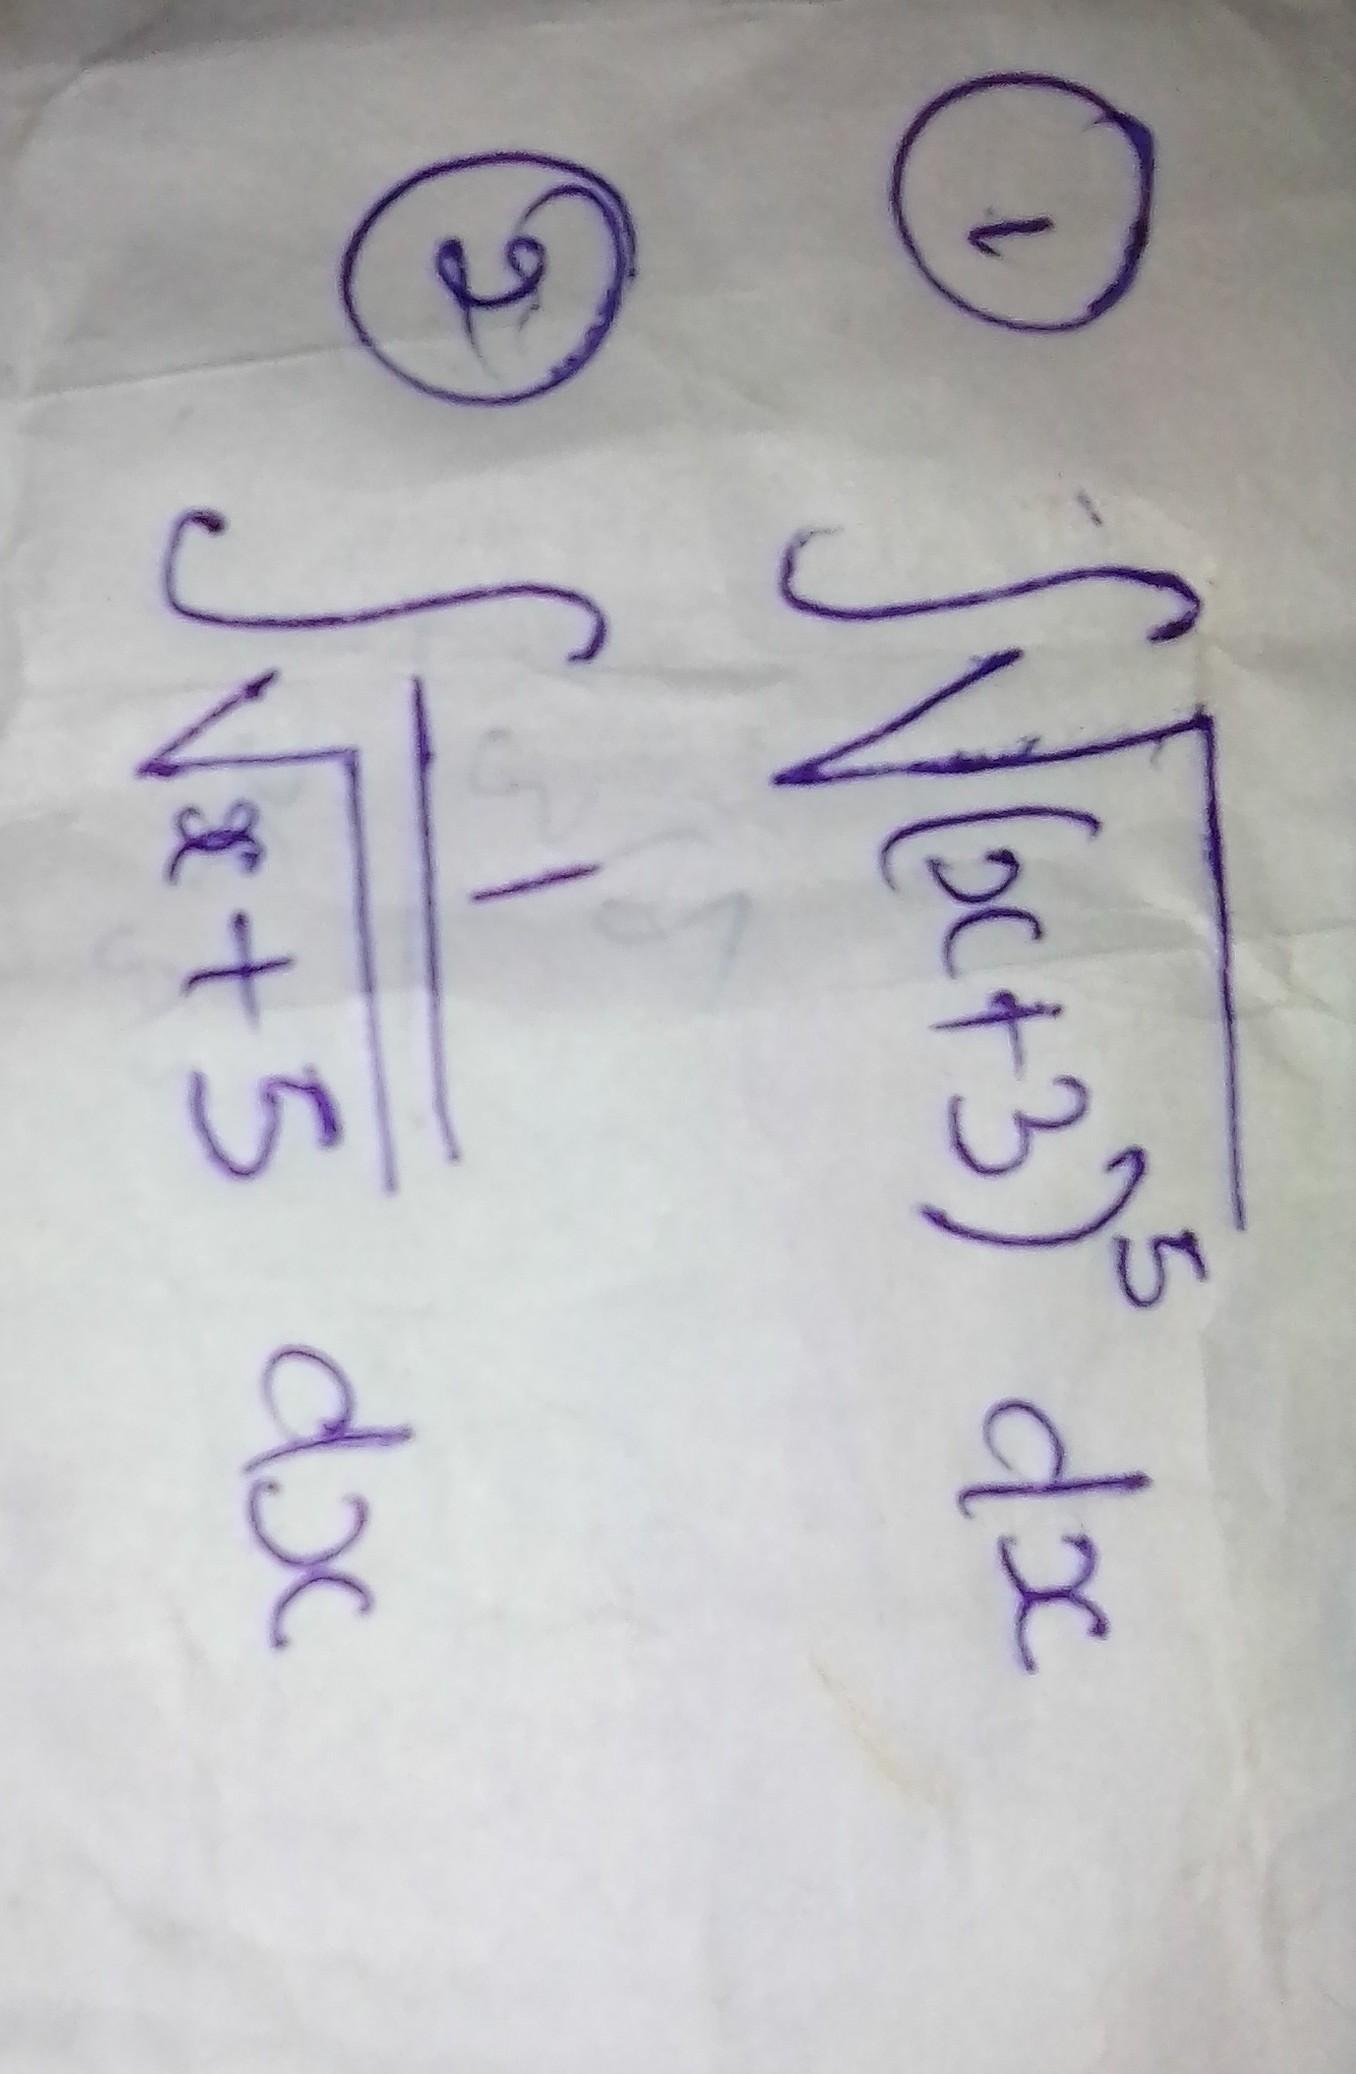 ① ∫√(x+3)⁵ dx
② ∫ 1/√(x+5) dx